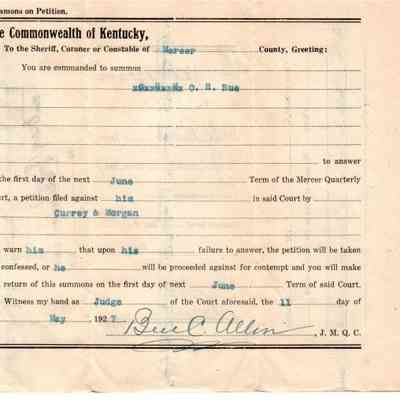 mmons on Petition.
e Commonwealth of Kentucky,
To the Sheriff, Coroner or Constable of Mercer County, Greeting:
You are commanded to summon
C. R. Rue
to answer
the first day of the next June Term of the Mercer Quarterly
rt, a petition filed against him in said Court by
Currey & Morgan
warn him that upon his failure to answer, the petition will be taken
confessed, or he will be proceeded against for contempt and you will make
return of this summons on the first day of next June Term of said Court.
Witness my hand as Judge of the Court aforesaid, the 11 day of
May , 1927 Ben C. Allin , J. M. Q. C.